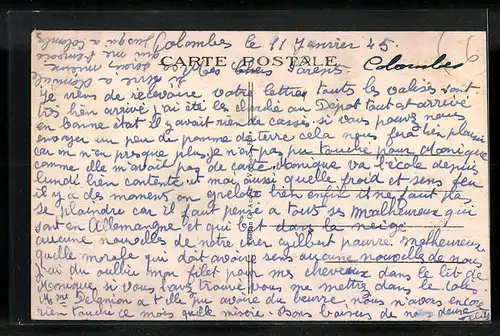 Colombes le 11 Janvier 45.
CARTE POSTALE
Colombes
Mes Chers Parents
Je viens de recevoire votre lettre touts les valises sont
très bien arrivé j'ai été les cherché au Dépot tout est arrivé
en bonne état il y avait rien de cassés si vous pouvez nous
envoyer un peu de pomme de terre cela nous fera bien plaisir
car on n'en presque plus, Je n'ait pas pu touché pour Monique
comme elle m'avait pas de carte. Monique va l'école depuis
lundi bien contente, et mai aussi quelle froid et sens feu
il y a des moment on grelotte bien enfin il ne faut pas
se plaindre car il faut pensé a tout ses malheureux qui
sont en Allemagne et qui est dans la neige
aucune nouvelles de notre cher Gilbert pauvre malheureux
quelle morale qui doit avoir sens aucune nouvelle de nous
j'ai du oublier mon filet pour mes cheveux dans le lit de
Monique si vous l'avez trouvé vous me mettrez dans le colis
Mme Delagnion a t elle pu avoire du beurre, nous n'avons encore
rien touché ce mois quelle misère. Bons baisers de nous deux